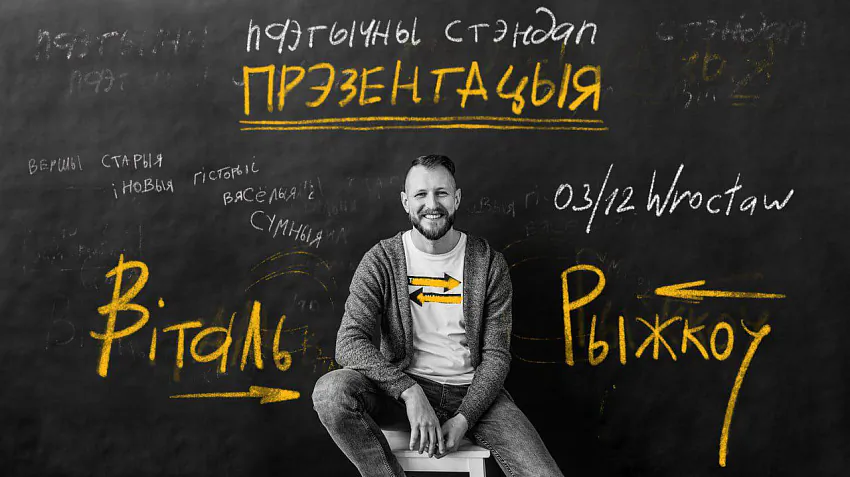 пАЭТЫЧНЫ СТЭНДАП
ПРЭЗЕНТАЦЫЯ
ВЕРШЫ СТАРЫЯ
і НОВЫЯ
ГІСТОРЫІ
ВЯСЁЛЫЯ і
СУМНЫЯ
03/12 Wrocław
Віталь
Рыжкоў